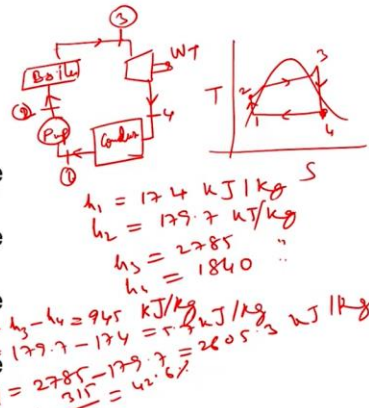 3
Boiler
WT
2
Pump
4
Condnr
1
T
3
2
1
4
S
h₁ = 174 kJ/kg
h₂ = 179.7 kJ/kg
h₃ = 2785 "
h₄ = 1840 "
h₃-h₄ = 945 kJ/kg
179.7-174 = 5.7 kJ/kg
= 2785-179.7 = 2605.3 kJ/kg
315
= 42.6%